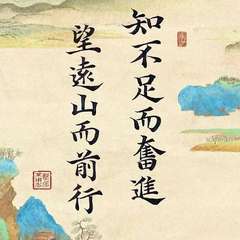 知不足而奮進
望遠山而前行